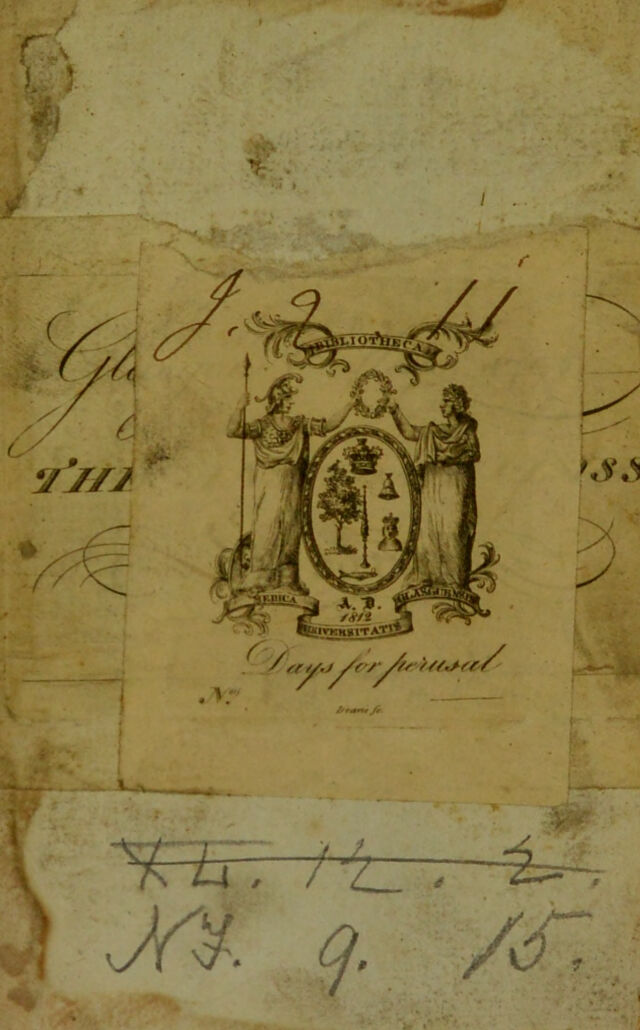 J. 2 11
BIBLIOTHECA
Gl
THE OSS
MEDICA GLASGUENSIS
A. D.
1812
UNIVERSITATIS
Days for perusal
Nos
XL. 12. 2.
NJ. 9. 15.